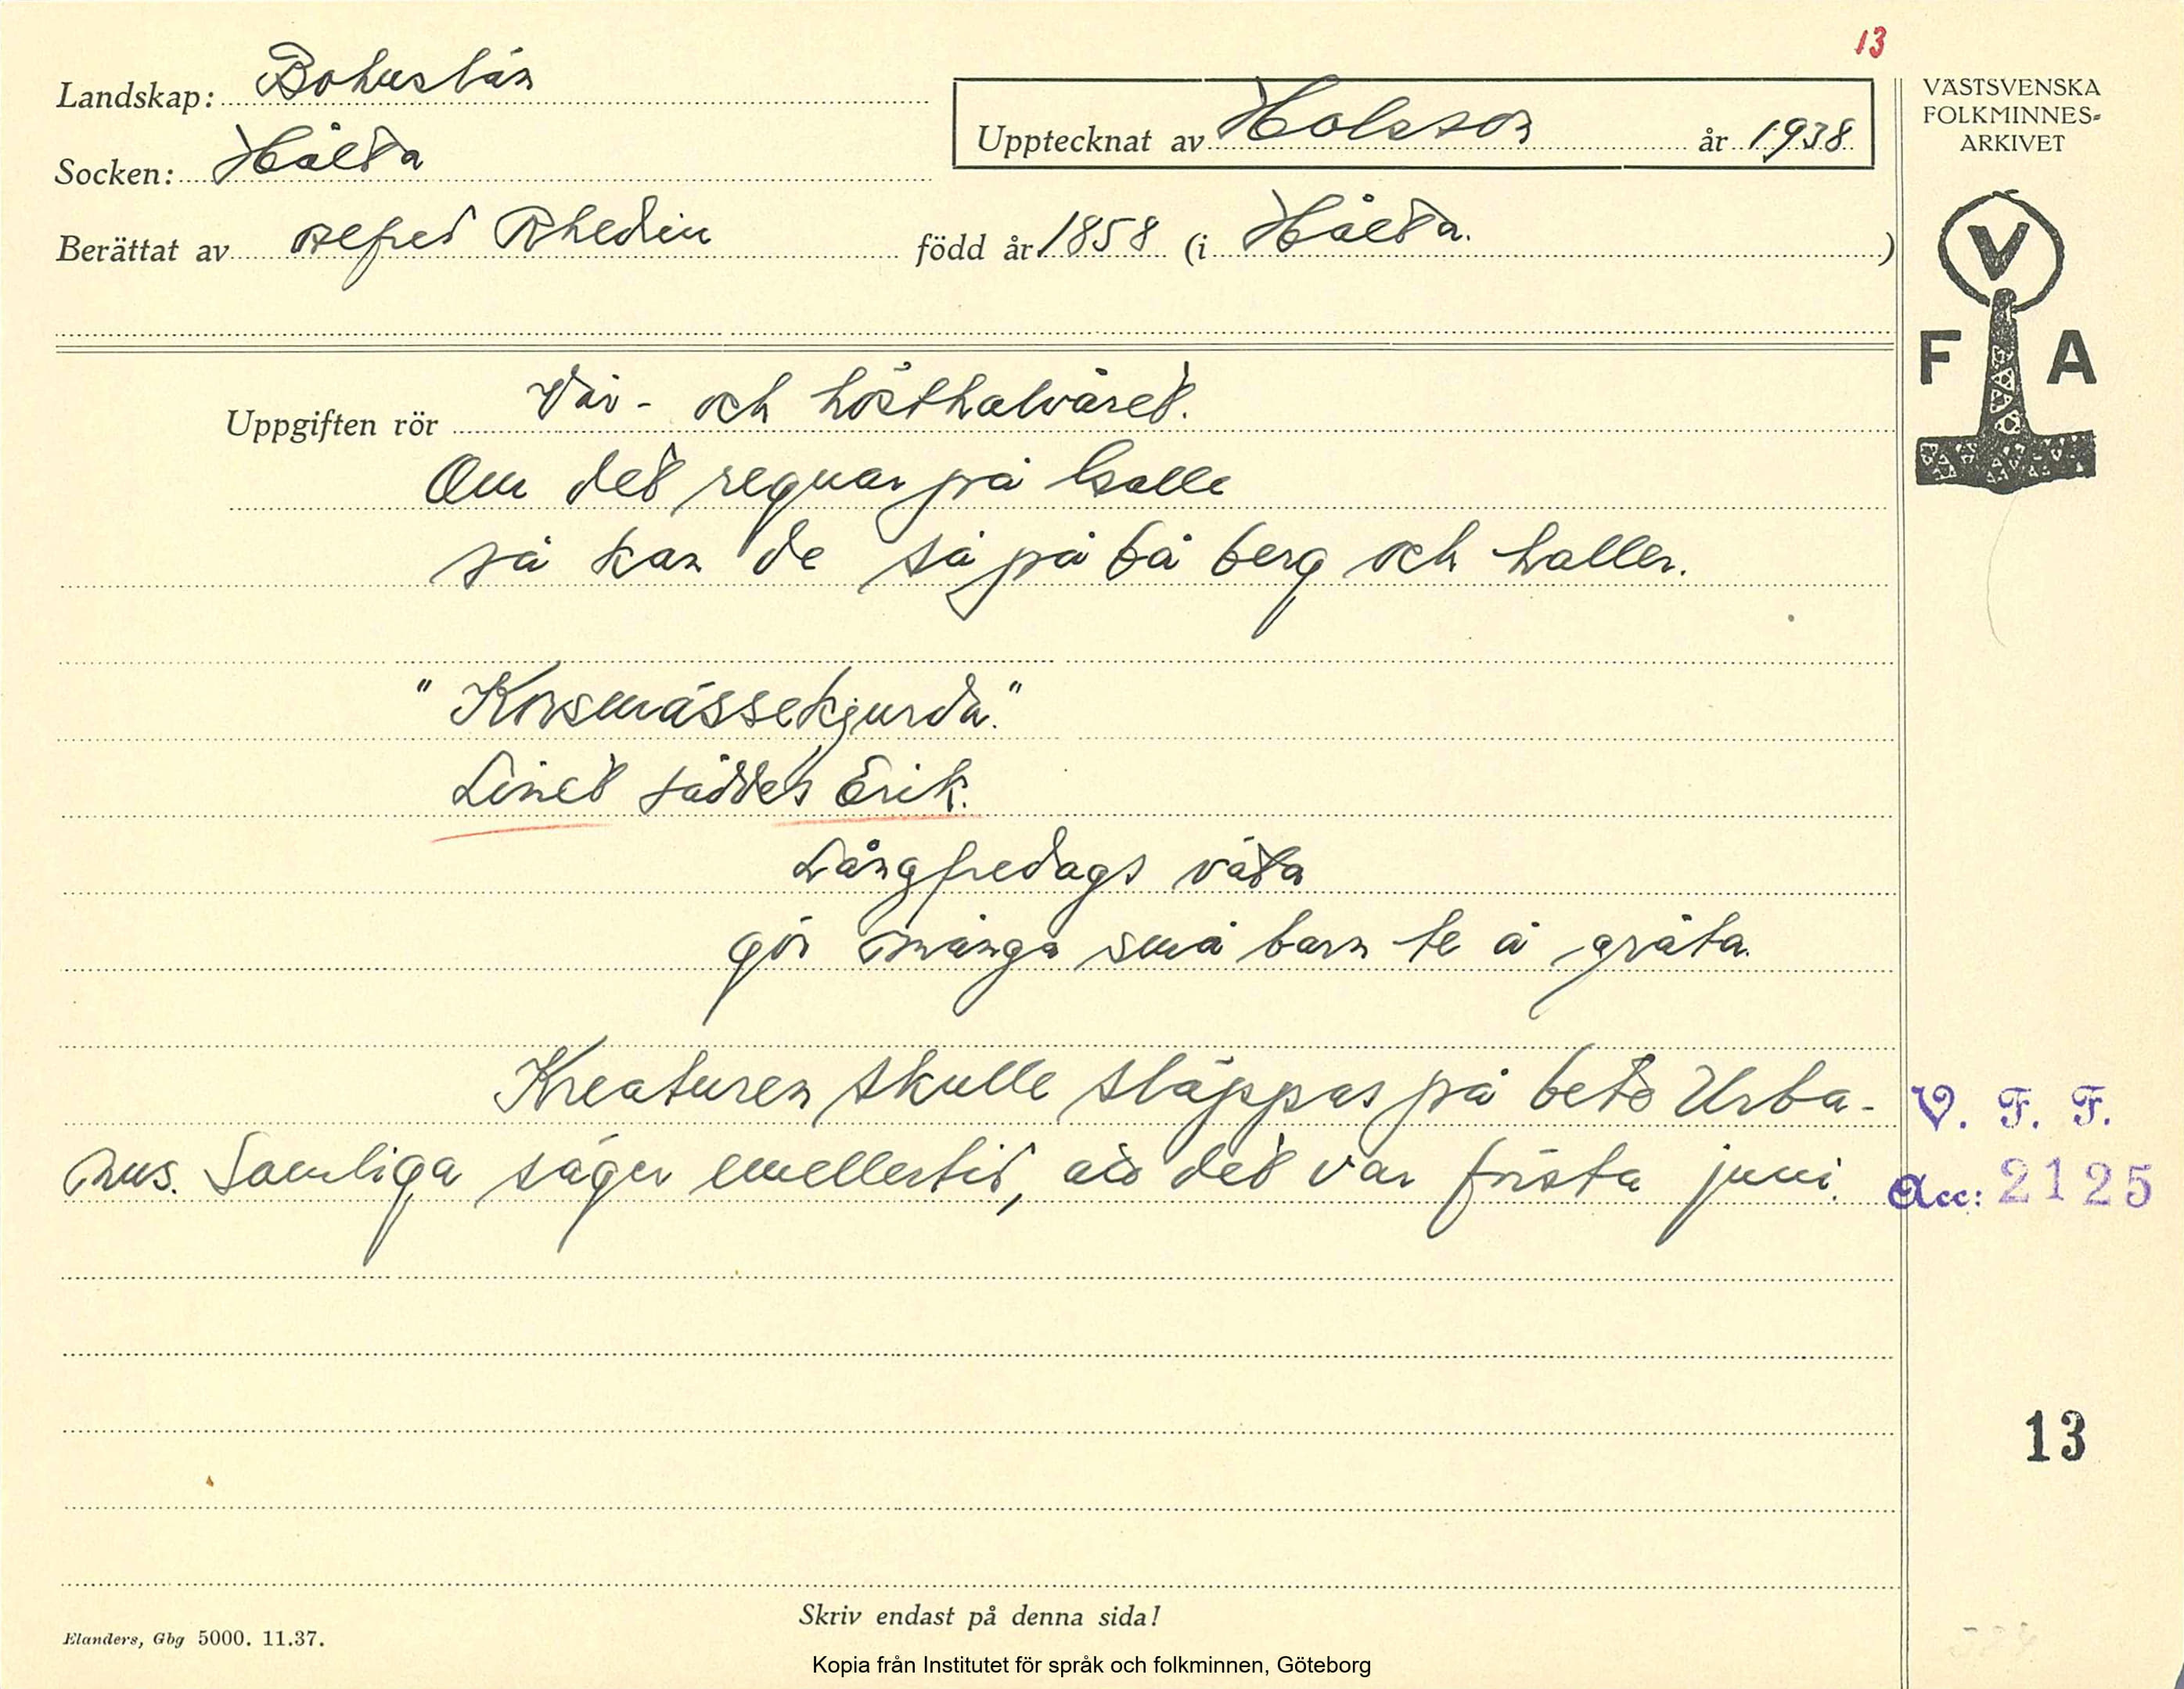 13
Landskap: Bohuslän
Upptecknat av Holsson år 1938
VÄSTSVENSKA
FOLKMINNES=
ARKIVET
Socken: Hålta
Berättat av Alfred Rhedin född år 1858 (i Hålta.)
V
F A
Uppgiften rör Vår- och hösthalvåret.
Om det regnar på Kalle
så kan de så på bå berg och haller.
"Korsmässekjurda."
Linet såddes Erik.
Långfredags väta
gör många små barn te å gråta.
Kreaturen skulle släppas på bete Urba-
nus. Somliga säger emellertid, att det var första juni.
V. F. F.
Acc: 2125
13
Skriv endast på denna sida!
Elanders, Gbg 5000. 11.37.
Kopia från Institutet för språk och folkminnen, Göteborg